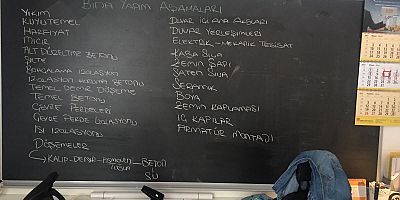 BİNA YAPIM AŞAMALARI
YIKIM
KUYU TEMEL
HAFRİYAT
MICIR
ALT DÜZELTME BETONU
ŞİLTE
BOHÇALAMA İZOLASYON
İZOLASYON KORUMA BETONU
TEMEL DEMİR DÖŞEME
TEMEL BETONU
ÇEVRE PERDELERİ
ÇEVRE PERDE İZOLASYONU
ISI İZOLASYONU
DÖŞEMELER
KALIP-DEMİR- BETON
SU
DUVAR AKSLARI
DUVAR YERLEŞİMLERİ
ELEKTRİK-MEKANİK TESİSAT
KABA SIVA
ZEMİN ŞAPI
SATEN SIVA
SERAMİK
BOYA
ZEMİN KAPLAMASI
İÇ KAPILAR
ARMATÜR MONTAJI